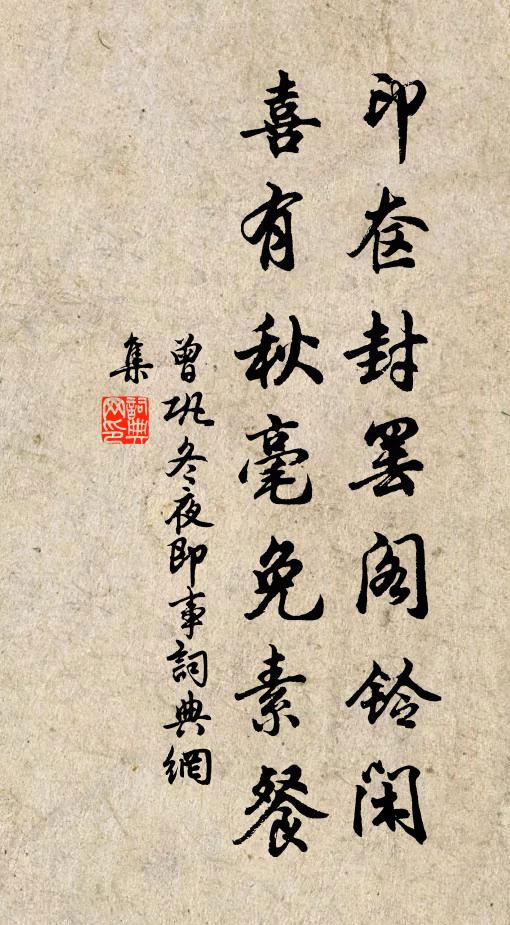 印奁封罢阁铃闲
喜有秋毫免素餐
曾巩冬夜即事詞典網
集
詞典網印